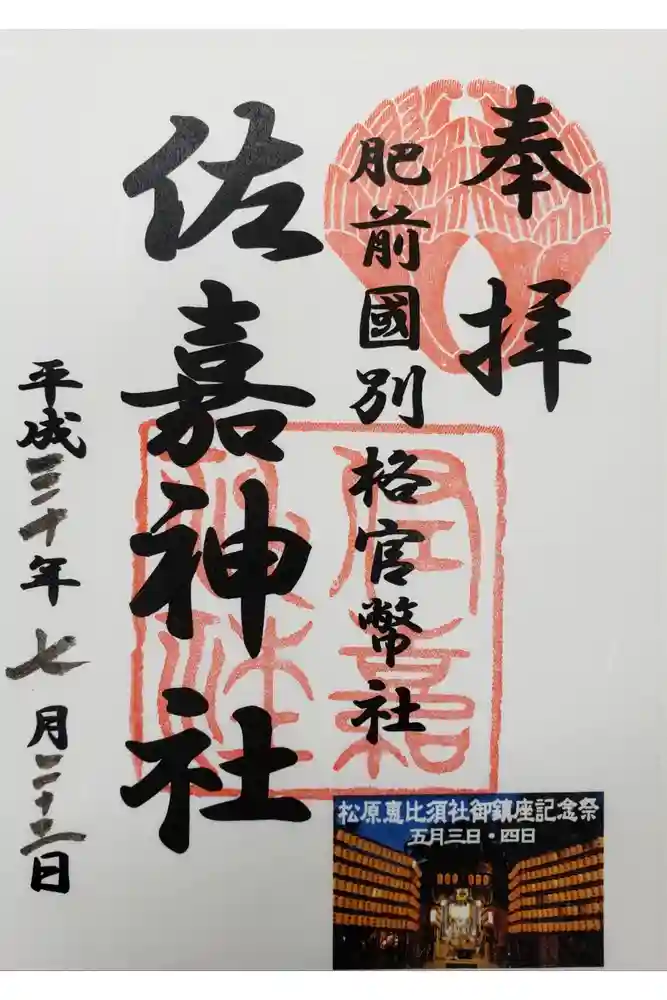 奉拝
肥前國別格官幣社
佐嘉神社
佐嘉
神社
平成三十年七月二十二日
松原恵比須社御鎮座記念祭
五月三日・四日